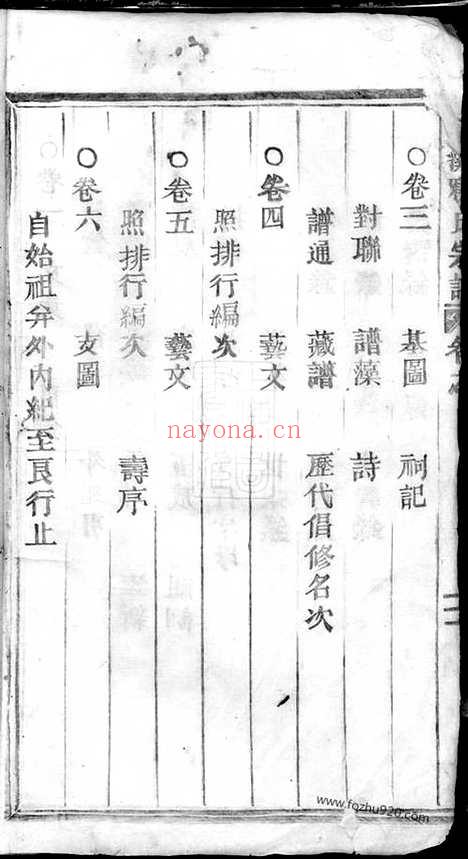 ○卷三 基圖 祠記
對聯 譜藻 詩
譜通 藏譜 歷代倡修名次
○卷四 藝文
照排行編次
○卷五 藝文
照排行編次 壽序
○卷六 支圖
自始祖弁外內紀至良行止
nayona.cn
www.fozhu920.com